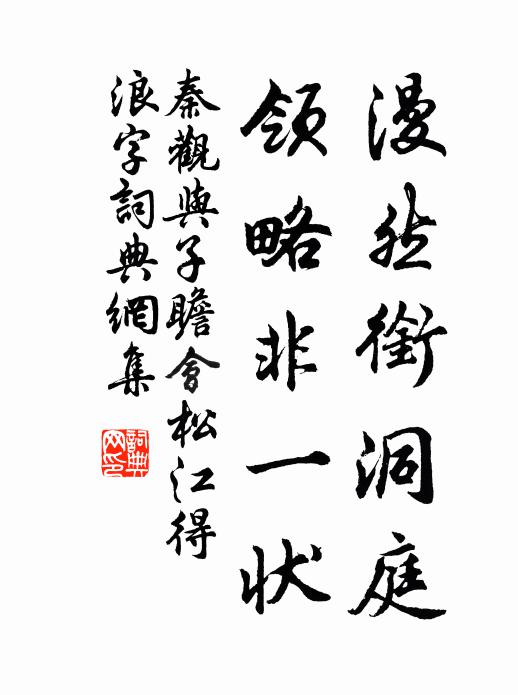 漫然銜洞庭
領略非一状
秦觀與子瞻會松江得
浪字詞典網集
詞典网印